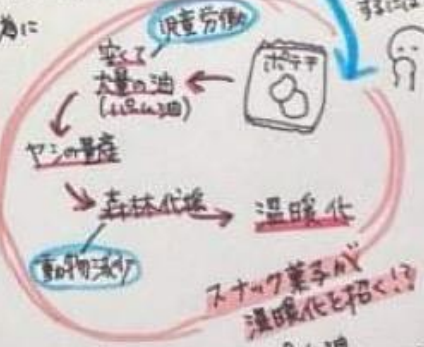 為に
するには
児童労働
安くて
大量の油
(パーム油)
ポテチ
ヤシの量産
森林伐採
温暖化
動物減少
スナック菓子が
温暖化を招く!?